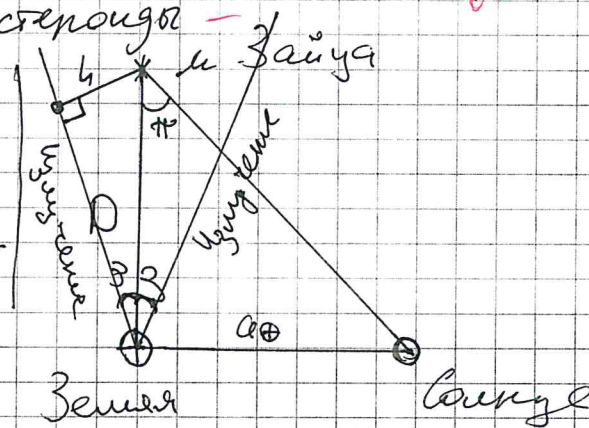 стероиды -
h
μ Зайца
π
Излучение
Излучение
D
β β
a⊕
Земля
Солнце